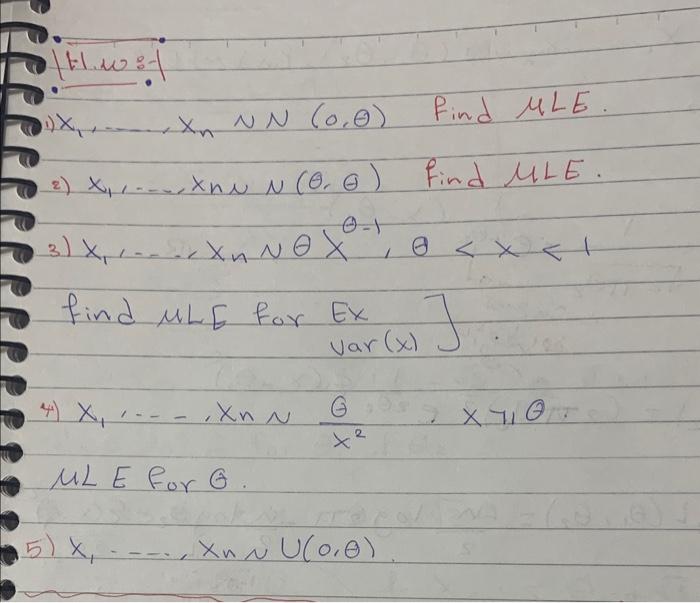 H.w :-
1) X₁, ......, Xn ~ N (0,θ) Find MLE.
2) X₁, ..., Xn ~ N (θ, θ) Find MLE.
3) X₁, ..., Xn ~ θ X^θ-1, θ < x < 1
find MLE for Ex
var (x) ] .
4) X₁, ..., Xn ~ θ/x², x ≥ θ.
MLE for θ.
5) X₁ ...., Xn ~ U(0,θ).